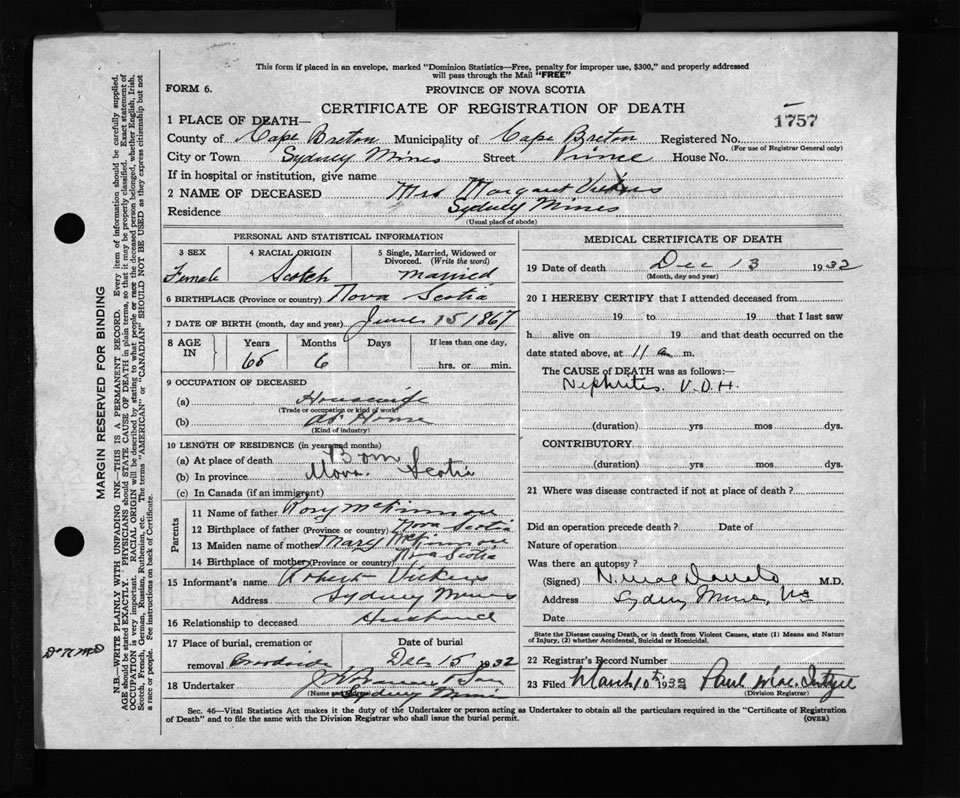 This form if placed in an envelope, marked "Dominion Statistics—Free, penalty for improper use, $300," and properly addressed
will pass through the Mail "FREE"
FORM 6.
PROVINCE OF NOVA SCOTIA
CERTIFICATE OF REGISTRATION OF DEATH
1757
1 PLACE OF DEATH—
County of Cape Breton Municipality of Cape Breton Registered No.
(For use of Registrar General only)
City or Town Sydney Mines Street Prince House No.
If in hospital or institution, give name
2 NAME OF DECEASED Mrs Margaret Vickers
Residence Sydney Mines
(Usual place of abode)
PERSONAL AND STATISTICAL INFORMATION
3 SEX 4 RACIAL ORIGIN 5 Single, Married, Widowed or
Divorced. (Write the word)
Female Scotch Married
6 BIRTHPLACE (Province or country) Nova Scotia
7 DATE OF BIRTH (month, day and year) June 15 1867
8 AGE IN Years Months Days If less than one day,
65 6 hrs. or min.
9 OCCUPATION OF DECEASED
(a) Housewife
(Trade or occupation or kind of work)
(b) At Home
(Kind of industry)
10 LENGTH OF RESIDENCE (in years and months)
(a) At place of death Born
(b) In province Nova Scotia
(c) In Canada (if an immigrant)
Parents
11 Name of father Rory McKinnon
12 Birthplace of father (Province or country) Nova Scotia
13 Maiden name of mother Mary McKinnon
14 Birthplace of mother (Province or country) Nova Scotia
15 Informant's name Robert Vickers
Address Sydney Mines
16 Relationship to deceased Husband
17 Place of burial, cremation or Date of burial
removal Brookside Dec 15 1932
18 Undertaker & Son
(Name and address) Sydney Mines
MEDICAL CERTIFICATE OF DEATH
19 Date of death Dec 13 1932
(Month, day and year)
20 I HEREBY CERTIFY that I attended deceased from
19 to 19 that I last saw
h alive on 19 and that death occurred on the
date stated above, at 11 a m.
The CAUSE OF DEATH was as follows:—
Nephritis. V.D.H.
(duration) yrs mos dys.
CONTRIBUTORY
(duration) yrs mos dys.
21 Where was disease contracted if not at place of death?
Did an operation precede death? Date of
Nature of operation
Was there an autopsy?
(Signed) N. MacDonald M.D.
Address Sydney Mines, NS
Date
State the Disease causing Death, or in death from Violent Causes, state (1) Means and Nature
of Injury, (2) whether Accidental, Suicidal or Homicidal.
22 Registrar's Record Number
23 Filed March 10th 1933 Paul MacIntyre
(Division Registrar)
Sec. 46—Vital Statistics Act makes it the duty of the Undertaker or person acting as Undertaker to obtain all the particulars required in the "Certificate of Registration
of Death" and to file the same with the Division Registrar who shall issue the burial permit.
(OVER)
MARGIN RESERVED FOR BINDING
N.B.—WRITE PLAINLY WITH UNFADING INK—THIS IS A PERMANENT RECORD. Every item of information should be carefully supplied.
AGE should be stated EXACTLY. PHYSICIANS should STATE CAUSE OF DEATH in plain terms, so that it may be properly classified. Exact statement of
OCCUPATION is very important. RACIAL ORIGIN will be described by stating to what people or race the deceased person belonged, whether English, Irish,
Scotch, French, German, Russian, Ruthenian, etc. The terms "AMERICAN" or "CANADIAN" SHOULD NOT BE USED as they express citizenship but not
a race or people. See instructions on back of Certificate.